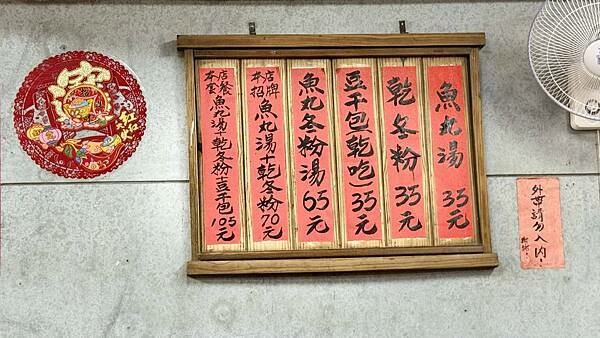 魚丸湯 35元
乾冬粉 35元
豆干包(乾吃) 35元
魚丸冬粉湯 65元
本店招牌 魚丸湯+乾冬粉 70元
本店套餐 魚丸湯+乾冬粉+豆干包 105元
外帶請勿入內!
謝謝!